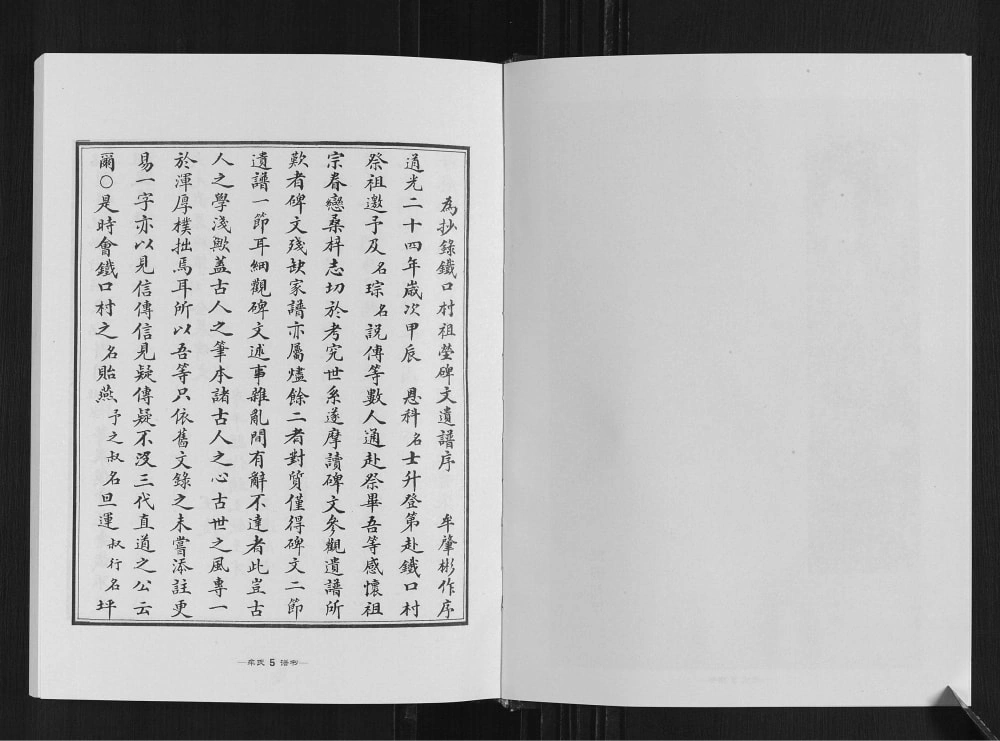 為抄錄鐵口村祖塋碑文遺譜序 牟肇彬作序
道光二十四年歲次甲辰 恩科名士升登第赴鐵口村
祭祖邀予及名琮名説傳等數人通赴祭畢吾等感懷祖
宗眷戀桑梓志切於考究世系遂摩讀碑文參觀遺譜所
歎者碑文殘缺家譜亦屬燼餘二者對質僅得碑文二節
遺譜一節耳細觀碑文述事雜亂間有辭不達者此豈古
人之學淺歟蓋古人之筆本諸古人之心古世之風專一
於渾厚樸拙焉耳所以吾等只依舊文錄之未嘗添註更
易一字亦以見信傳信見疑傳疑不沒三代直道之公云
爾○是時會鐵口村之名貽燕予之叔名旦運叔行名坪
牟氏 5 譜書